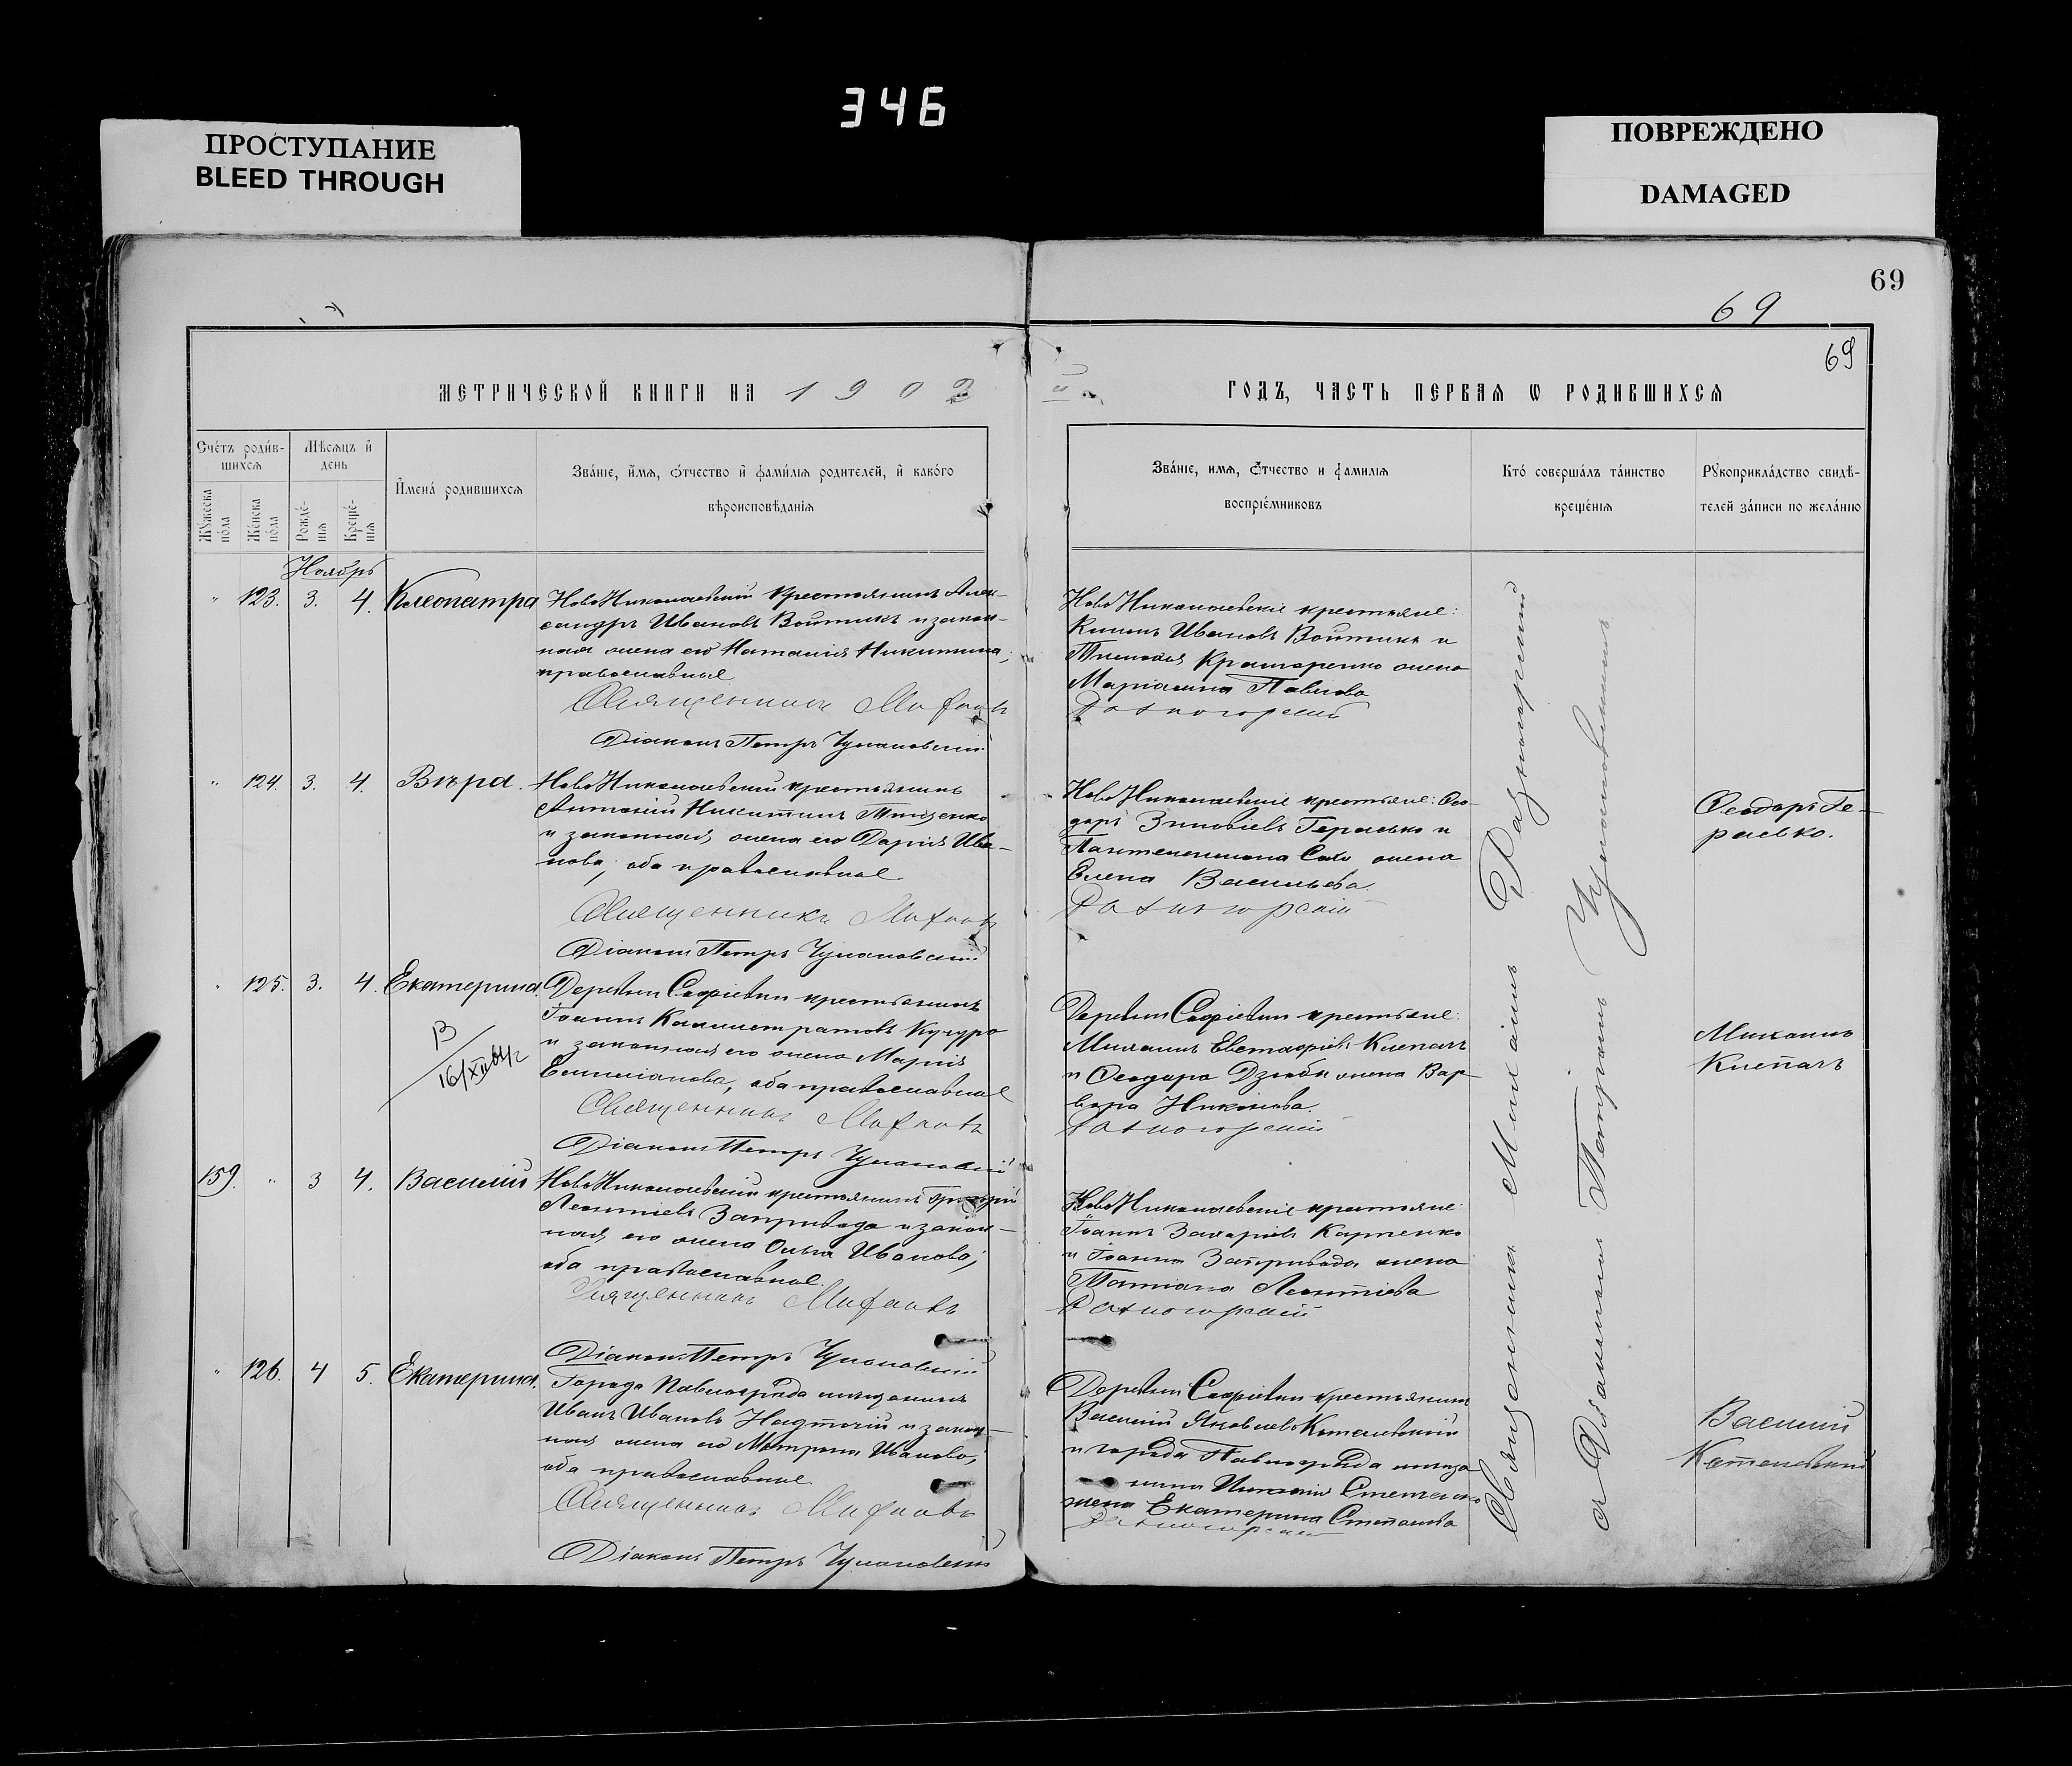 346
ПРОСТУПАНИЕ
BLEED THROUGH
ПОВРЕЖДЕНО
DAMAGED
69
69
69
МЕТРИЧЕСКОЙ КНИГИ НА 1902
ГОДЪ, ЧАСТЬ ПЕРВАЯ Ѡ РОДИВШИХСЯ
Счетъ родив-
шихся
Мѣсяцъ и
день
Мужеска
пола
Женска
пола
Рожде-
нія
Креще-
нія
Имена родившихся
Званіе, имя, отчество и фамилія родителей, и какого
вѣроисповѣданія
Званіе, имя, отчество и фамилія
воспріемниковъ
Кто совершалъ таинство
крещенія
Рукоприкладство свидѣ-
телей записи по желанію
Ноябрь
123. 3. 4. Клеопатра
НовоНиколаевскій крестьянинъ Алек-
сандръ Ивановъ Войтикъ и закон-
ная жена его Наталія Никитина,
православные
Священникъ
Діаконъ Петръ Чумановскій
НовоНиколаевскіе крестьяне:
Ивановъ Войтикъ и
Крамаренко жена
Маріамна Павлова
Разногорскій
124. 3. 4. Вѣра.
НовоНиколаевскій крестьянинъ
Антоній Никитинъ Тищенко
и законная жена его Дарія Ива-
нова, оба православные
Священникъ
Діаконъ Петръ Чумановскій
НовоНиколаевскіе крестьяне: Ѳео-
доръ Зиновіевъ Герасько и
Пантелеимона жена
Елена Васильева.
Разногорскій
Ѳеодоръ Ге-
расько.
125. 3. 4. Екатерина.
Деревни Софіевки крестьянинъ
Іоаннъ Каллистратовъ Кучура
и законная его жена Марія
Емиліанова, оба православные
Священникъ
Діаконъ Петръ Чумановскій
Деревни Софіевки крестьяне:
Михаилъ Евстафіевъ Клепачъ
и Ѳеодора Дзюбы жена Вар-
вара Никонова.
Разногорскій
Михаилъ
Клепачъ
159. 3 4. Василій
НовоНиколаевскій крестьянинъ Григорій
Леонтіевъ Запривода и закон-
ная его жена Ольга Иванова,
оба православные.
Священникъ
Діаконъ Петръ Чумановскій
НовоНиколаевскіе крестьяне:
Іоаннъ Захаріевъ Карпенко
и Іоанна Запривода жена
Татіана Леонтіева
Разногорскій
126. 4 5. Екатерина.
Города Павлограда мѣщанинъ
Иванъ Ивановъ Надточій и закон-
ная жена его Матрона Иванова,
оба православные
Священникъ
Діаконъ Петръ Чумановскій
Деревни Софіевки крестьянинъ
Василій Яковлевъ Котелевскій
и города Павлограда мѣща-
нина
жена Екатерина Степанова
Разногорскій
Василій
Котелевскій
Священникъ Разногорскій
и Діакономъ Петромъ Чумановскимъ